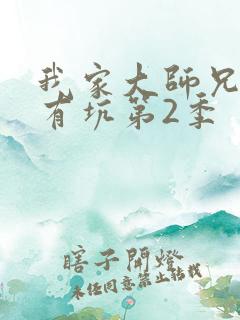 我家大師兄
有坑第2季
瞎子開燈
未任同意禁止轉載